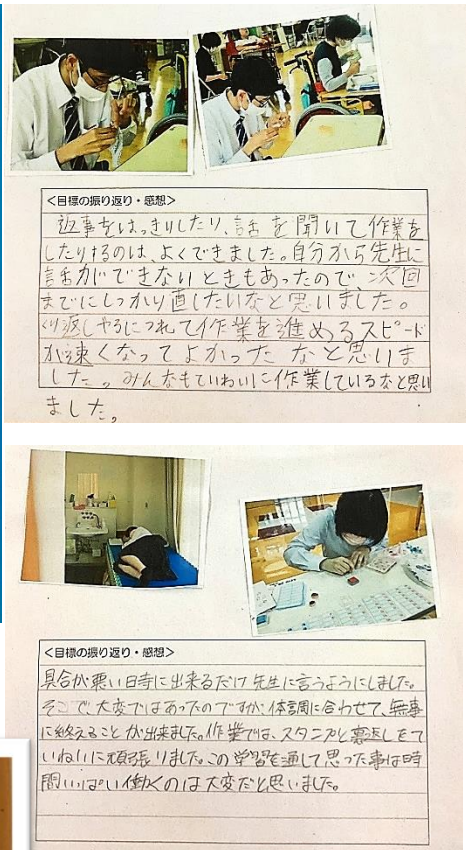 <目標の振り返り・感想>
返事をはっきりしたり、話を聞いて作業を
したりするのは、よくできました。自分から先生に
話ができないときもあったので、次回
までにしっかり直したいなと思いました。
くり返しやるにつれて作業を進めるスピード
が速くなってよかったなと思いま
した。みんなもていねいに作業しているなと思い
ました。
<目標の振り返り・感想>
具合が悪い時に出来るだけ先生に言うようにしました。
そこで、大変ではあったのですが、体調に合わせて、無事
に終えることが出来ました。作業では、スタンプと裏返しをて
いねいに頑張りました。この学習を通して思った事は時
間いっぱい働くのは大変だと思いました。